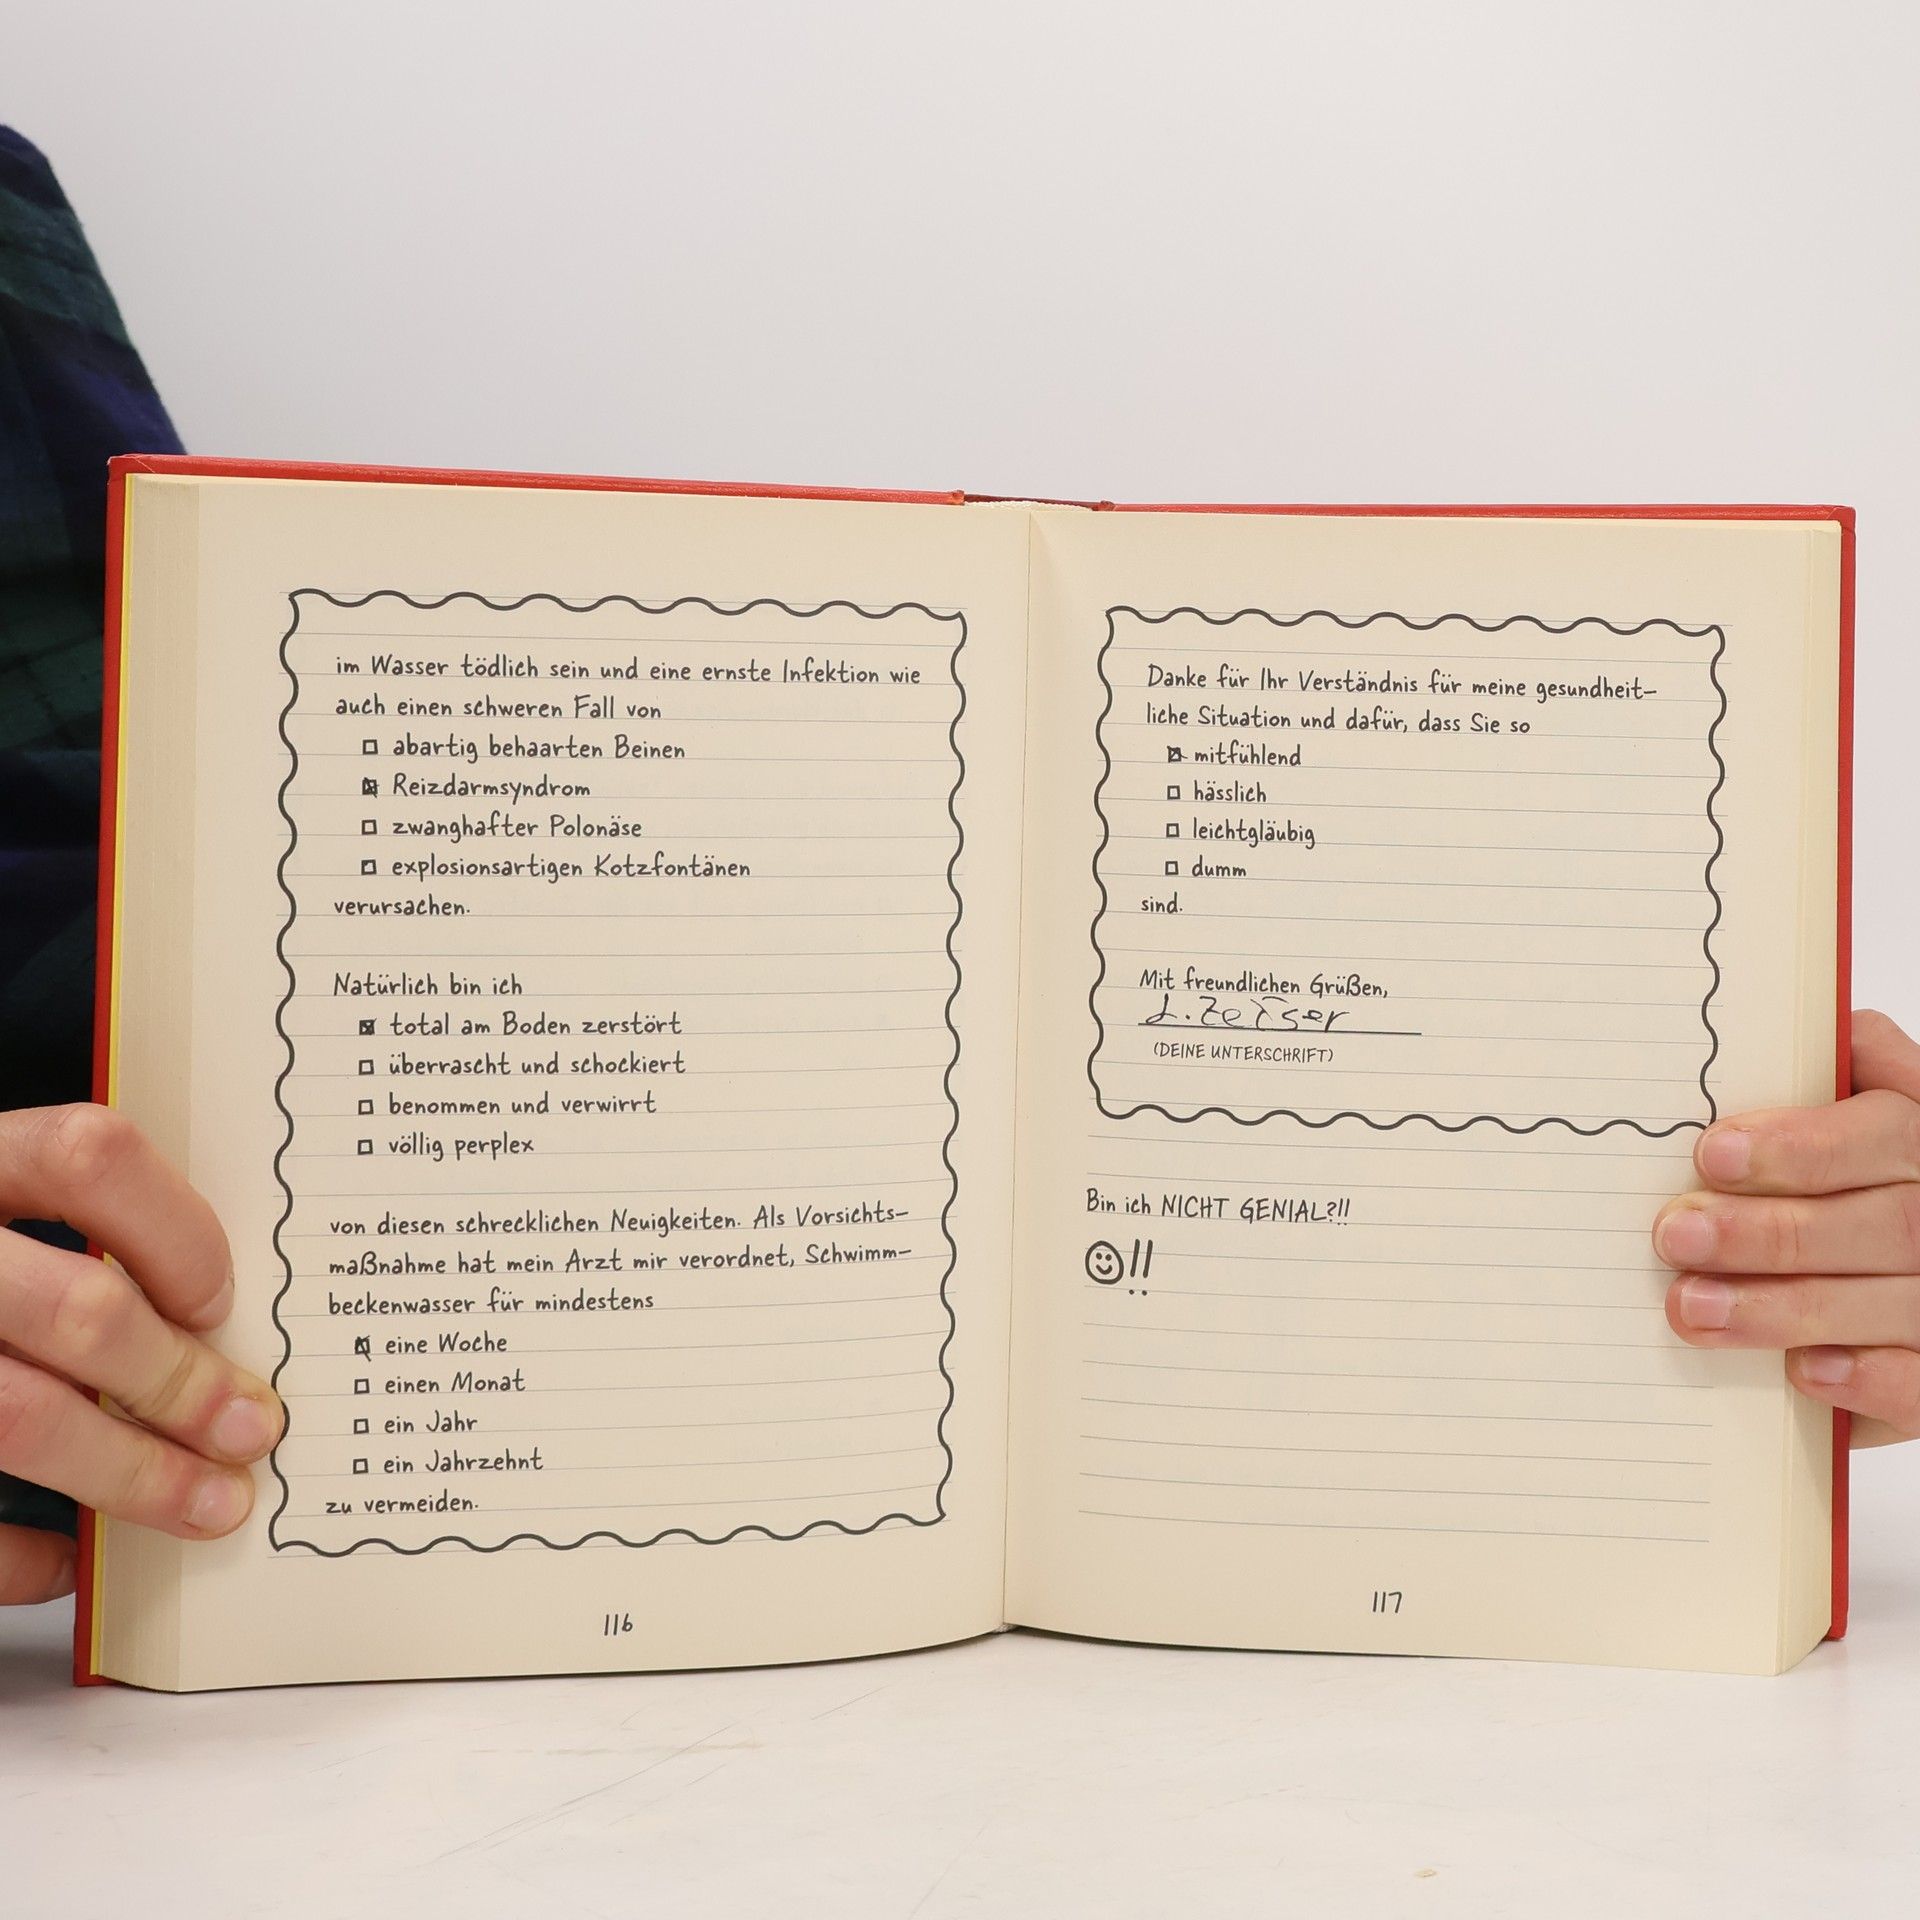 im Wasser tödlich sein und eine ernste Infektion wie
auch einen schweren Fall von
☐ abartig behaarten Beinen
☒ Reizdarmsyndrom
☐ zwanghafter Polonäse
☐ explosionsartigen Kotzfontänen
verursachen.
Natürlich bin ich
☒ total am Boden zerstört
☐ überrascht und schockiert
☐ benommen und verwirrt
☐ völlig perplex
von diesen schrecklichen Neuigkeiten. Als Vorsichts-
maßnahme hat mein Arzt mir verordnet, Schwimm-
beckenwasser für mindestens
☒ eine Woche
☐ einen Monat
☐ ein Jahr
☐ ein Jahrzehnt
zu vermeiden.
116
Danke für Ihr Verständnis für meine gesundheit-
liche Situation und dafür, dass Sie so
☒ mitfühlend
☐ hässlich
☐ leichtgläubig
☐ dumm
sind.
Mit freundlichen Grüßen,
L. Zeiser
(DEINE UNTERSCHRIFT)
Bin ich NICHT GENIAL?!!
☺!!
117